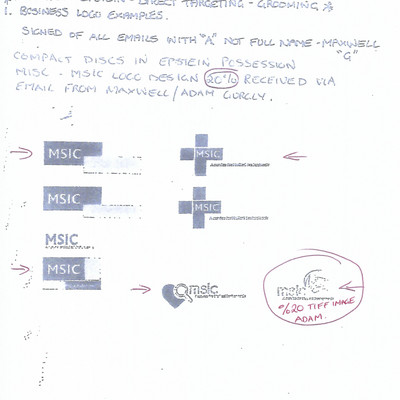 EPSTEIN - DIRECT TARGETING - GROOMING
1. BUSINESS LOGO EXAMPLES.
SIGNED OF ALL EMAILS WITH "A" NOT FULL NAME - MAXWELL "G"
COMPACT DISCS IN EPSTEIN POSSESSION
MISC - MSIC LOGO DESIGN 20% RECEIVED VIA
EMAIL FROM MAXWELL/ADAM
MSIC
MSIC
MSIC
MSIC
MSIC
MSIC
msic
msic
%20 TIFF IMAGE
ADAM.